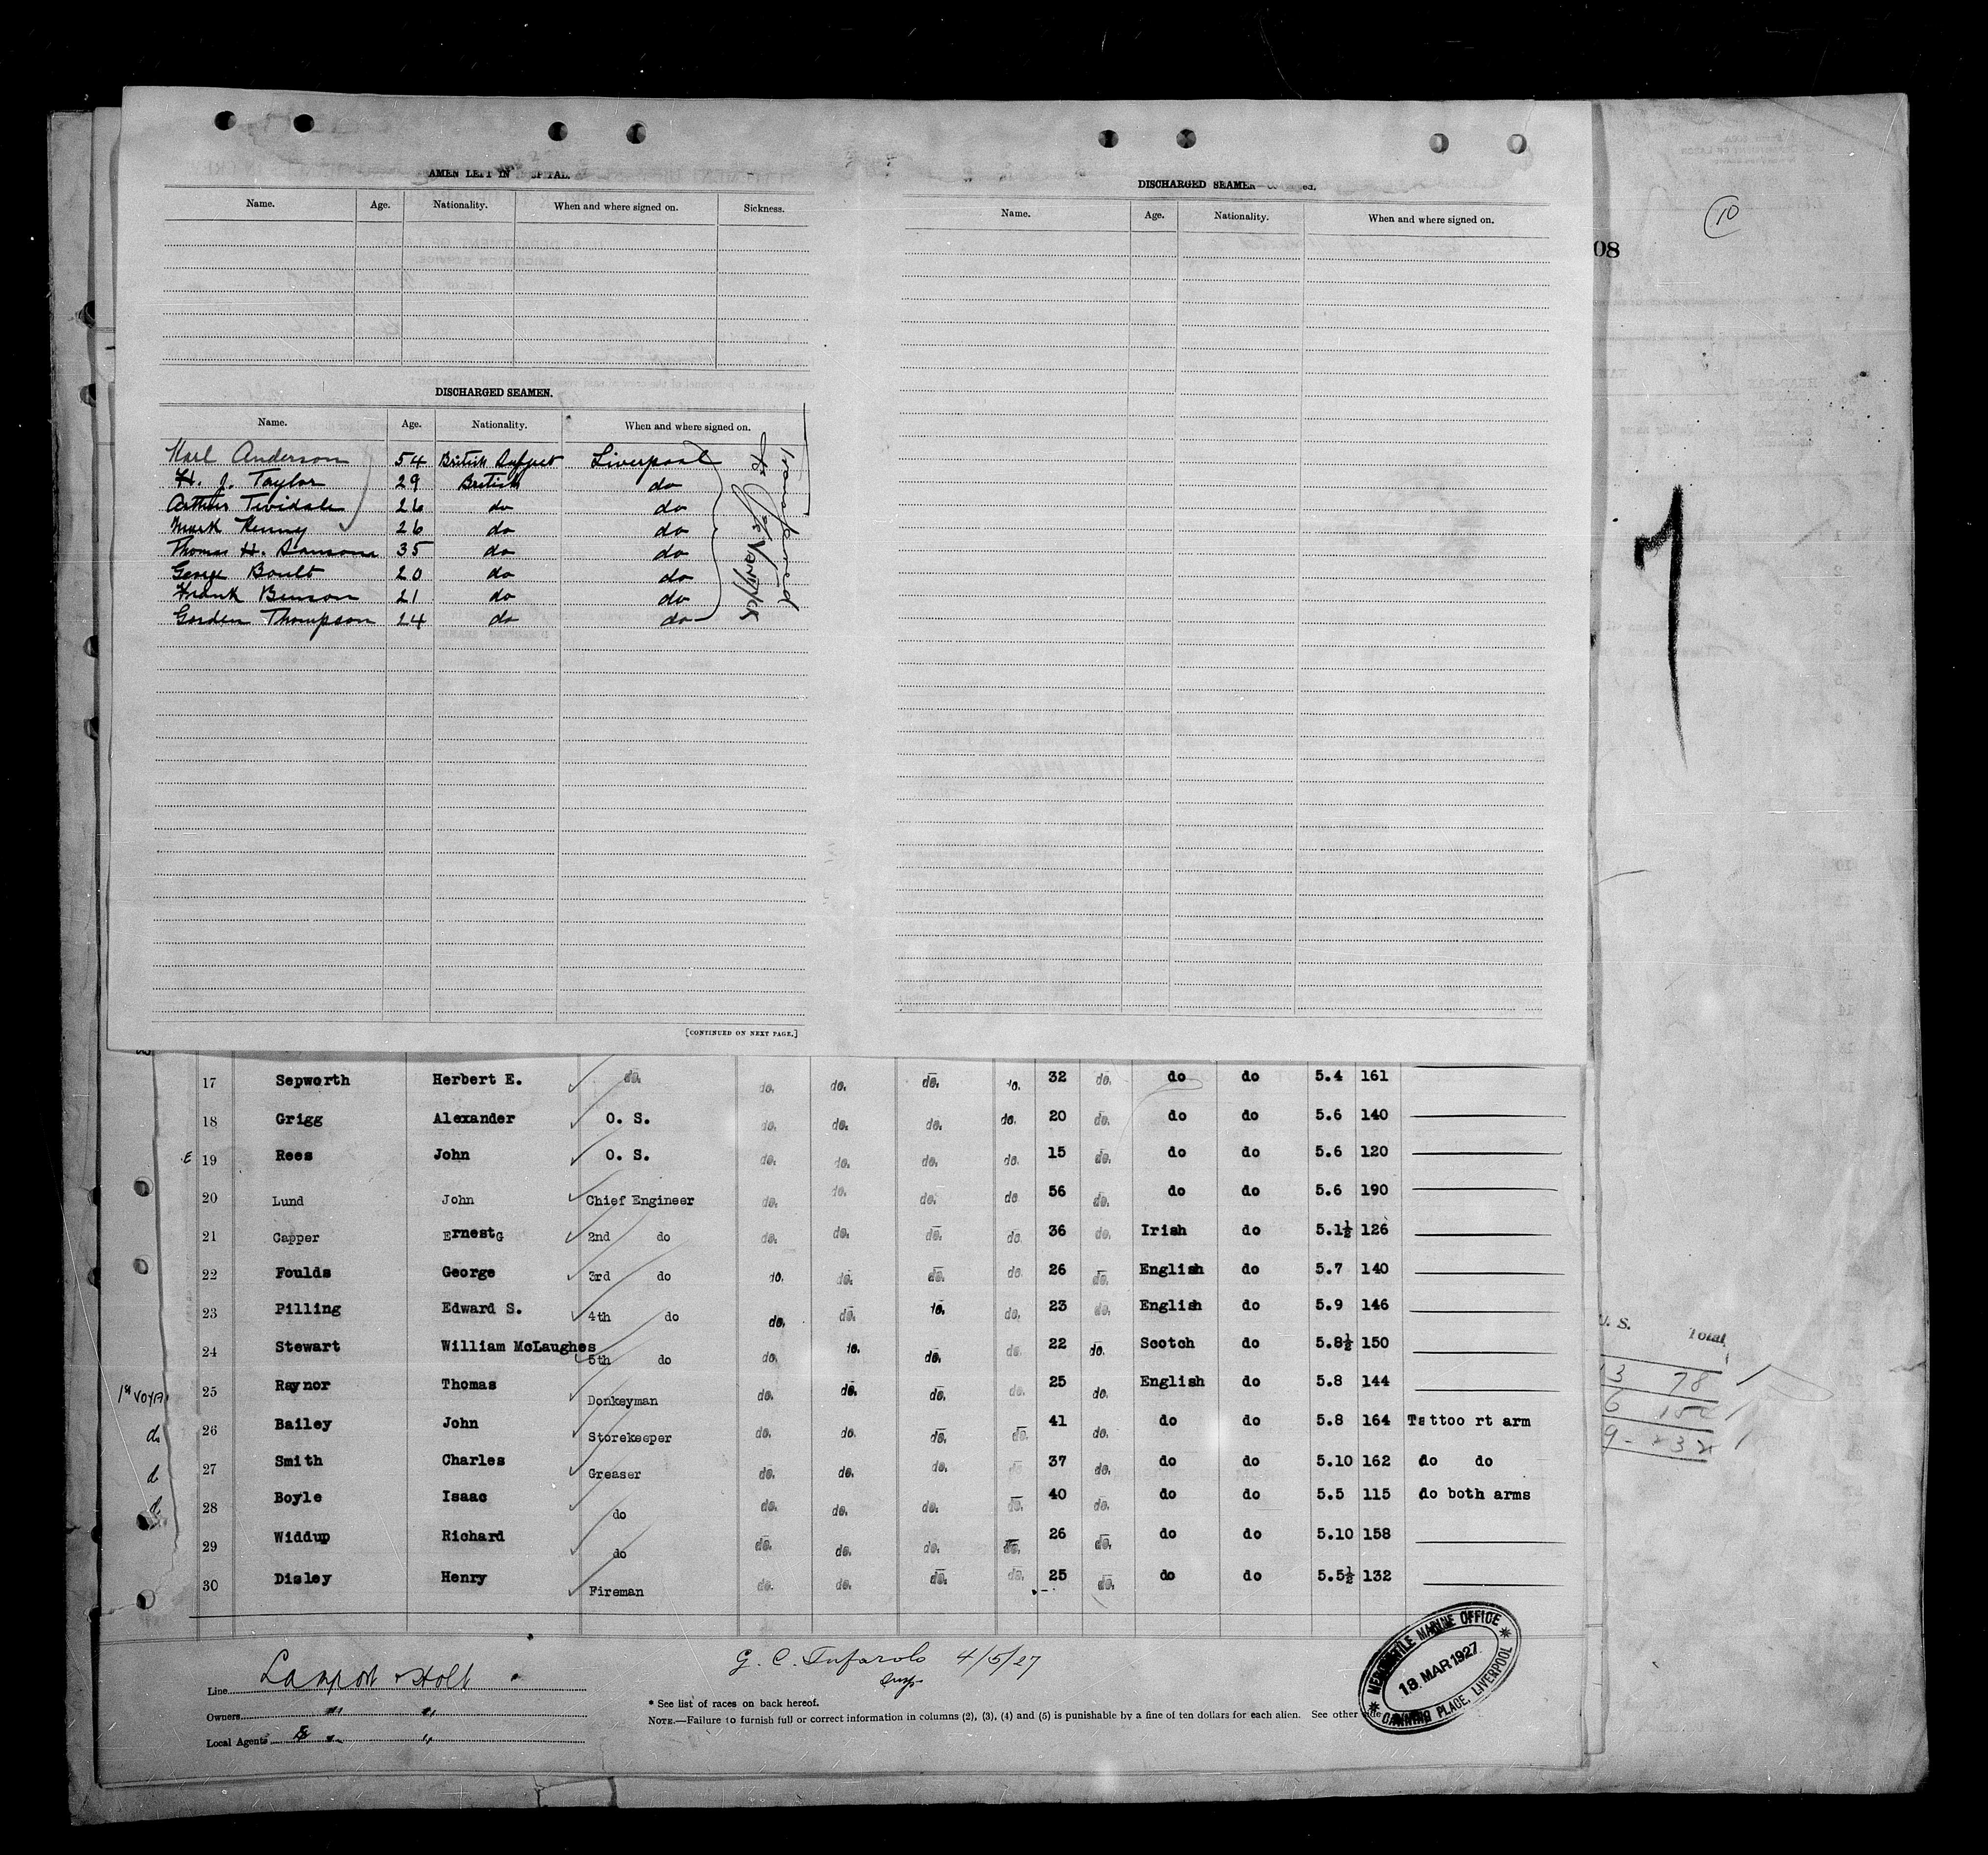 AMEN LEFT IN SPITAL.
Name. Age. Nationality. When and where signed on. Sickness.
DISCHARGED SEAMEN.
Name. Age. Nationality. When and where signed on.
Karl Anderson 54 British Subject Liverpool
H. J. Taylor 29 British do
Arthur Tividale 26 do do
Mark Kenny 26 do do
Thomas H. Sansom 35 do do
George Boult 20 do do
Frank Benson 21 do do
Gorden Thompson 24 do do
[CONTINUED ON NEXT PAGE.]
DISCHARGED SEAMEN ed.
Name. Age. Nationality. When and where signed on.
10
08
17 Sepworth Herbert E. do. do. do. do. do. 32 do. do do 5.4 161
18 Grigg Alexander O. S. do. do. do. do. 20 do. do do 5.6 140
E 19 Rees John O. S. do. do. do. do. 15 do. do do 5.6 120
20 Lund John Chief Engineer do. do. do. do 56 do. do do 5.6 190
21 Capper Ernest G 2nd do do. do. do. do. 36 do. Irish do 5.1½ 126
22 Foulds George 3rd do do. do. do. do. 26 do. English do 5.7 140
23 Pilling Edward S. 4th do do. do. do. do. 23 do. English do 5.9 146
24 Stewart William McLaughes 5th do do. do. do. do. 22 do. Scotch do 5.8½ 150
1st VOYA 25 Raynor Thomas Donkeyman do. do. do. do. 25 do. English do 5.8 144
d. 26 Bailey John Storekeeper do. do. do. do. 41 do. do do 5.8 164 Tattoo rt arm
d 27 Smith Charles Greaser do. do. do. 37 do. do do 5.10 162 do do
d. 28 Boyle Isaac do do. do. do. do. 40 do. do do 5.5 115 do both arms
29 Widdup Richard do do. do. do. do. 26 do. do do 5.10 158
30 Disley Henry Fireman do. do. do. do. 25 do. do do 5.5½ 132
U. S. Total
13 78
6 154
9 - 232
Line Lamport & Holt
Owners " "
Local Agents " "
G. C. Tufarolo 4/5/27
Insp.
* See list of races on back hereof.
NOTE.—Failure to furnish full or correct information in columns (2), (3), (4) and (5) is punishable by a fine of ten dollars for each alien. See other side
MERCANTILE MARINE OFFICE
18 MAR 1927
CANNING PLACE, LIVERPOOL